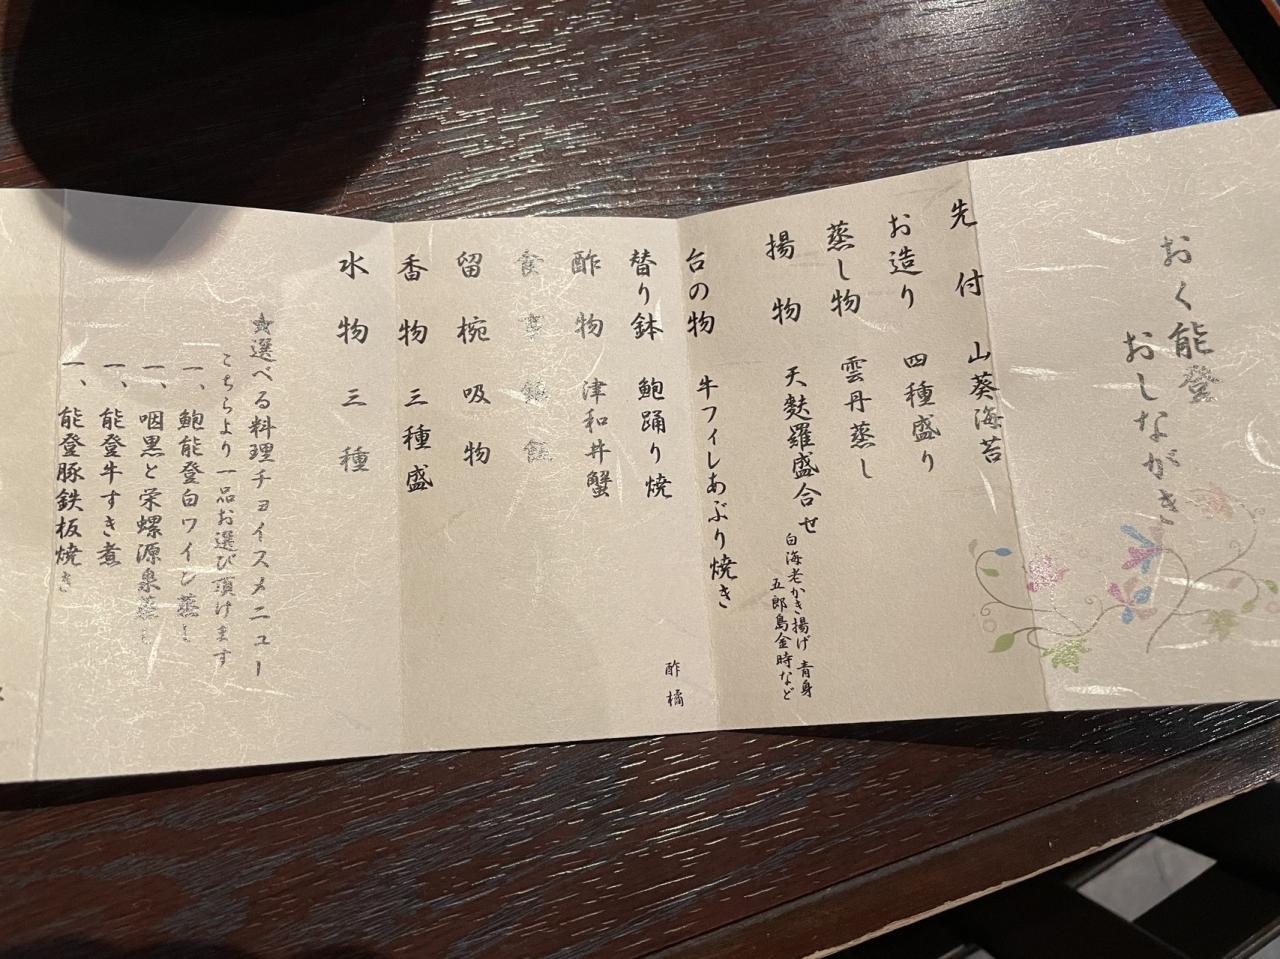 おく能登
おしながき
先付 山葵海苔
お造り 四種盛り
蒸し物 雲丹蒸し
揚物 天麩羅盛合せ
白海老かき揚げ 青身
五郎島金時など
台の物 牛フィレあぶり焼き
替り鉢 鮑踊り焼
酢橘
酢物 津和井蟹
食事 釜飯
留椀 吸物
香物 三種盛
水物 三種
★選べる料理チョイスメニュー
こちらより一品お選び頂けます
一、鮑能登白ワイン蒸し
一、咽黒と栄螺源泉蒸し
一、能登牛すき煮
一、能登豚鉄板焼き